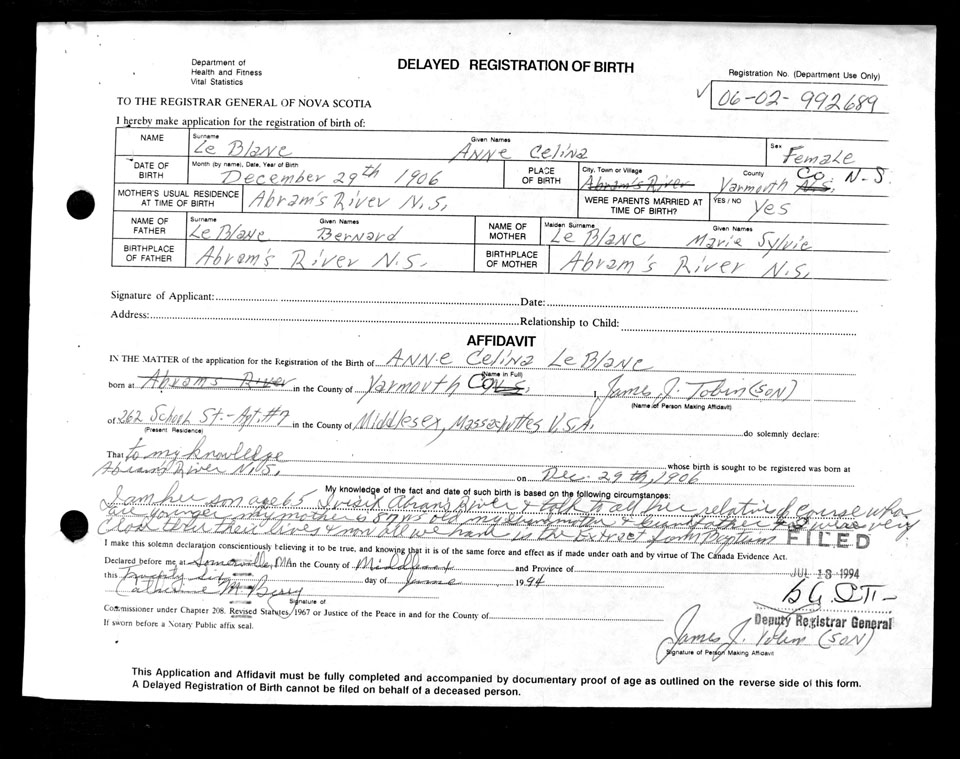 Department of
Health and Fitness
Vital Statistics
DELAYED REGISTRATION OF BIRTH
Registration No. (Department Use Only)
06-02-992689
TO THE REGISTRAR GENERAL OF NOVA SCOTIA
I hereby make application for the registration of birth of:
NAME Surname Le Blanc Given Names Anne Celina Sex Female
DATE OF BIRTH Month (by name), Date, Year of Birth December 29th 1906 PLACE OF BIRTH City, Town or Village Abram's River County Yarmouth Co N.S. N.S.
MOTHER'S USUAL RESIDENCE AT TIME OF BIRTH Abram's River N.S. WERE PARENTS MARRIED AT TIME OF BIRTH? YES / NO Yes
NAME OF FATHER Surname Le Blanc Given Names Bernard NAME OF MOTHER Maiden Surname Le Blanc Given Names Marie Sylvie
BIRTHPLACE OF FATHER Abram's River N.S. BIRTHPLACE OF MOTHER Abram's River N.S.
Signature of Applicant: Date:
Address: Relationship to Child:
AFFIDAVIT
IN THE MATTER of the application for the Registration of the Birth of Anne Celina Le Blanc
(Name in Full)
born at Abram's River in the County of Yarmouth Co N.S. I, James J. Tobin (SON)
(Name of Person Making Affidavit)
of 262 School St.-Apt.#7 in the County of Middlesex, Massachuttes U.S.A. do solemnly declare:
(Present Residence)
That to my knowledge whose birth is sought to be registered was born at
Abrams River N.S. on Dec. 29th, 1906
My knowledge of the fact and date of such birth is based on the following circumstances:
I am her son age 65 I visit Abrams River & talk to all her relatives of course who
are younger my mother is 87 yrs old my & were very
close their lives & now all we have is the Extract form Baptism
FILED
I make this solemn declaration conscientiously believing it to be true, and knowing that it is of the same force and effect as if made under oath and by virtue of The Canada Evidence Act.
Declared before me at Somerville, MA in the County of Middlesex and Province of
JUL 13 1994
this Twenty Six day of June 1994
Catherine M. Berry
Signature of
Commissioner under Chapter 208. Revised Statutes, 1967 or Justice of the Peace in and for the County of
Deputy Registrar General
If sworn before a Notary Public affix seal.
James J. Tobin (SON)
Signature of Person Making Affidavit
This Application and Affidavit must be fully completed and accompanied by documentary proof of age as outlined on the reverse side of this form.
A Delayed Registration of Birth cannot be filed on behalf of a deceased person.